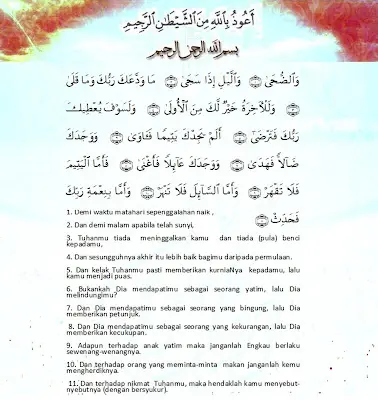 أَعُوذُ بِاللَّهِ مِنَ الشَّيْطَانِ الرَّجِيمِ
بسم الله الرحمن الرحيم
وَالضُّحَىٰ ۝ وَاللَّيْلِ إِذَا سَجَىٰ ۝ مَا وَدَّعَكَ رَبُّكَ وَمَا قَلَىٰ
۝ وَلَلْآخِرَةُ خَيْرٌ لَّكَ مِنَ الْأُولَىٰ ۝ وَلَسَوْفَ يُعْطِيكَ
رَبُّكَ فَتَرْضَىٰ ۝ أَلَمْ يَجِدْكَ يَتِيمًا فَآوَىٰ ۝ وَوَجَدَكَ
ضَالًّا فَهَدَىٰ ۝ وَوَجَدَكَ عَائِلًا فَأَغْنَىٰ ۝ فَأَمَّا الْيَتِيمَ
فَلَا تَقْهَرْ ۝ وَأَمَّا السَّائِلَ فَلَا تَنْهَرْ ۝ وَأَمَّا بِنِعْمَةِ رَبِّكَ
فَحَدِّثْ ۝
1. Demi waktu matahari sepenggalahan naik ,
2. Dan demi malam apabila telah sunyi,
3. Tuhanmu tiada meninggalkan kamu dan tiada (pula) benci
kepadamu,
4. Dan sesungguhnya akhir itu lebih baik bagimu daripada permulaan.
5. Dan kelak Tuhanmu pasti memberikan kurniaNya kepadamu, lalu
kamu menjadi puas.
6. Bukankah Dia mendapatimu sebagai seorang yatim, lalu Dia
melindungimu?
7. Dan Dia mendapatimu sebagai seorang yang bingung, lalu Dia
memberikan petunjuk.
8. Dan Dia mendapatimu sebagai seorang yang kekurangan, lalu Dia
memberikan kecukupan.
9. Adapun terhadap anak yatim maka janganlah Engkau berlaku
sewenang-wenangnya.
10. Dan terhadap orang yang meminta-minta makan janganlah kemu
mengherdiknya.
11. Dan terhadap nikmat Tuhanmu, maka hendaklah kamu menyebut-
nyebutnya (dengan bersyukur).